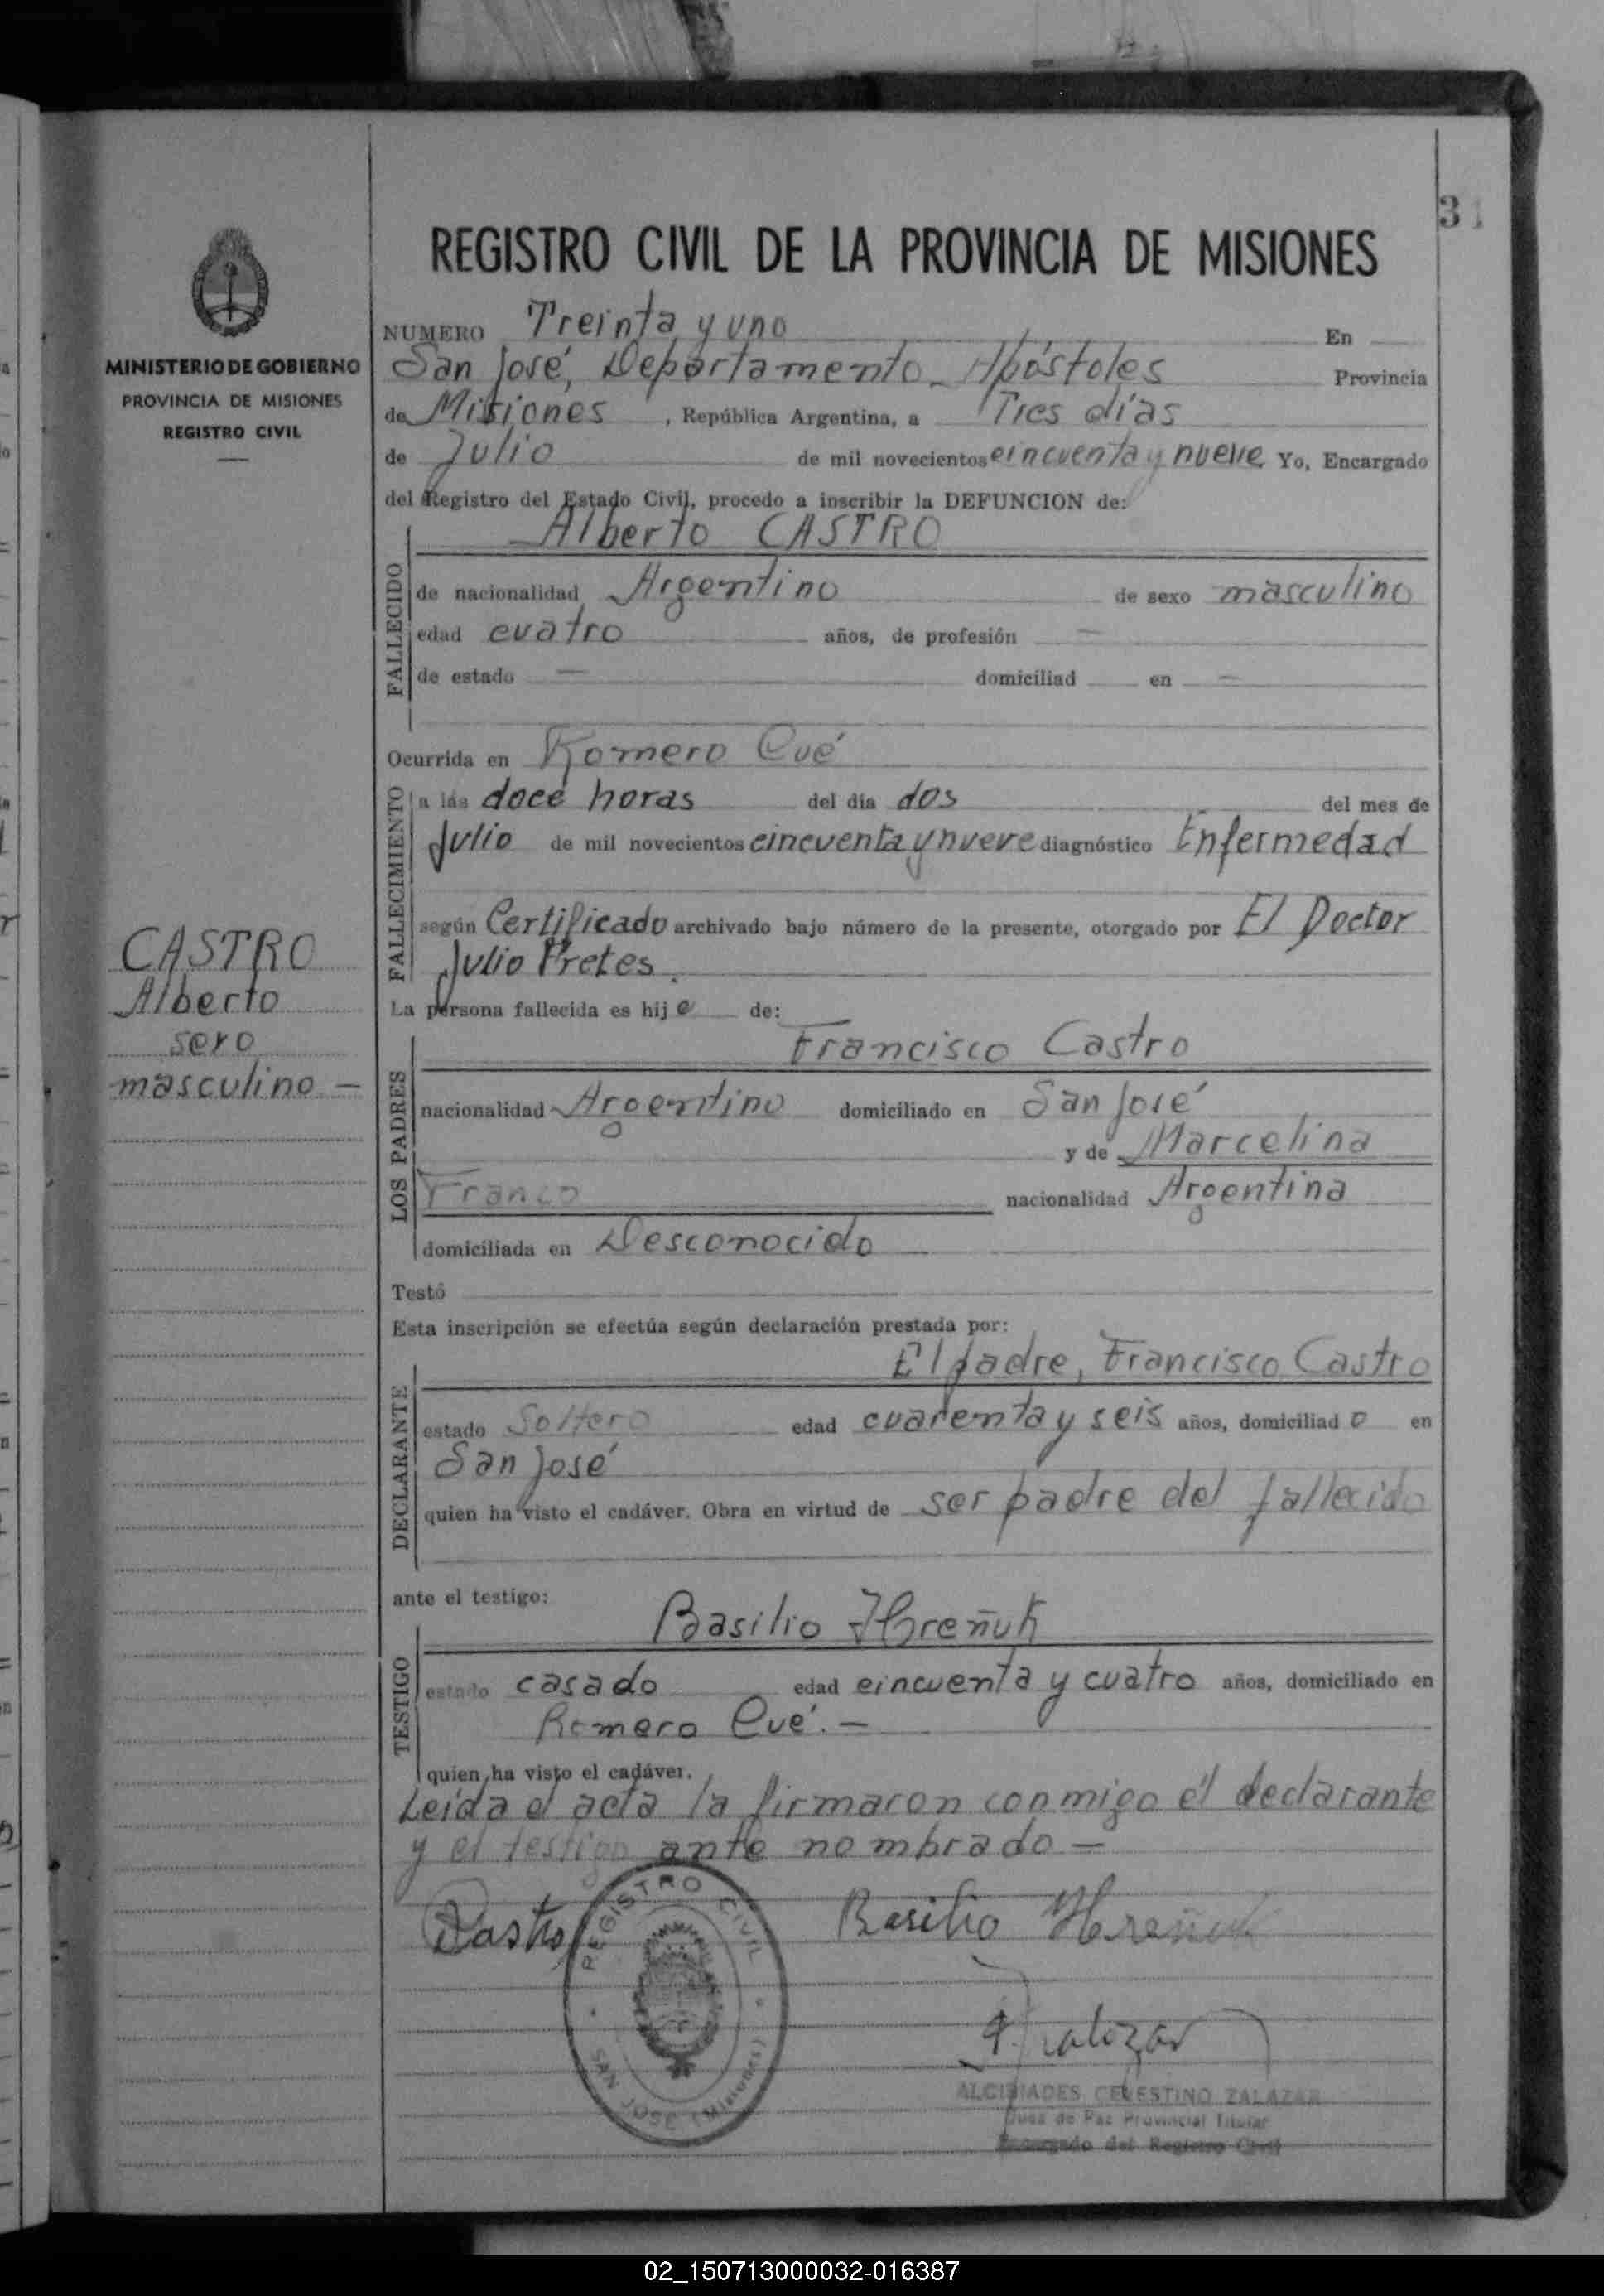 31
MINISTERIO DE GOBIERNO
PROVINCIA DE MISIONES
REGISTRO CIVIL
CASTRO
Alberto
sexo
masculino —
REGISTRO CIVIL DE LA PROVINCIA DE MISIONES
NUMERO Treinta y uno En
San José, Departamento Apóstoles Provincia
de Misiones, República Argentina, a Tres días
de Julio de mil novecientos cincuenta y nueve Yo, Encargado
del Registro del Estado Civil, procedo a inscribir la DEFUNCION de:
Alberto CASTRO
FALLECIDO
de nacionalidad Argentino de sexo masculino
edad cuatro años, de profesión —
de estado — domiciliad en —
Ocurrida en Romero Cué
FALLECIMIENTO
a las doce horas del día dos del mes de
Julio de mil novecientos cincuenta y nueve diagnóstico Enfermedad
según Certificado archivado bajo número de la presente, otorgado por El Doctor
Julio Pretes.
La persona fallecida es hijo de:
Francisco Castro
LOS PADRES
nacionalidad Argentino domiciliado en San José
y de Marcelina
Franco nacionalidad Argentina
domiciliada en Desconocido
Testó
Esta inscripción se efectúa según declaración prestada por:
El padre, Francisco Castro
DECLARANTE
estado Soltero edad cuarenta y seis años, domiciliado en
San José
quien ha visto el cadáver. Obra en virtud de ser padre del fallecido
ante el testigo:
Basilio Hreñuk
TESTIGO
estado casado edad cincuenta y cuatro años, domiciliado en
Romero Cué. —
quien ha visto el cadáver.
Leída el acta la firmaron conmigo él declarante
y el testigo ante nombrado —
Castro Basilio Hreñuk
REGISTRO CIVIL
SAN JOSE (Misiones)
ALCIBIADES CELESTINO ZALAZAR
Juez de Paz Provincial Titular
Encargado del Registro Civil
02_150713000032-016387